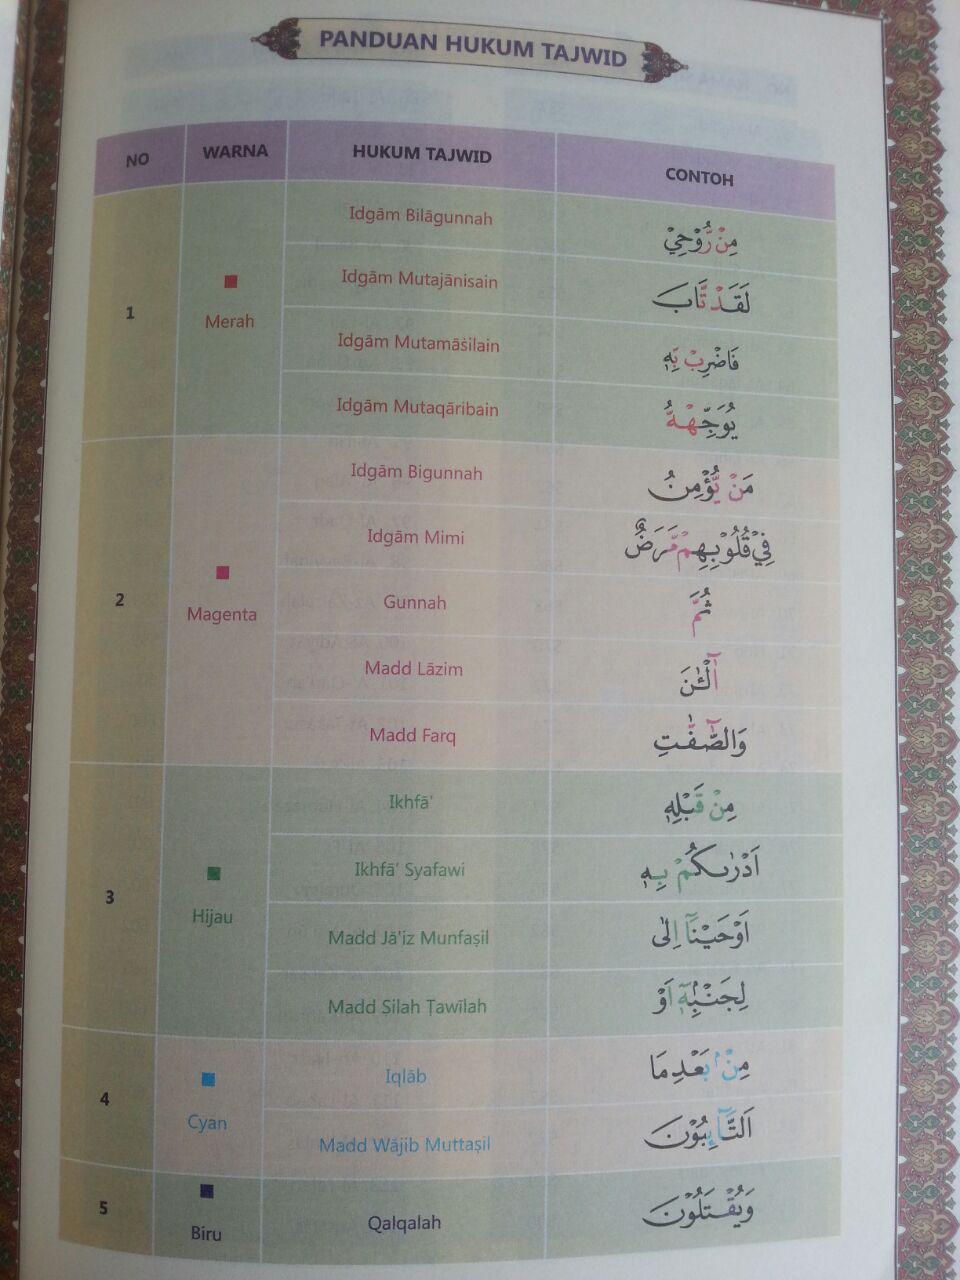 PANDUAN HUKUM TAJWID
NO WARNA HUKUM TAJWID CONTOH
1 Merah
Idgām Bilāgunnah مِنْ رُّوْحِيْ
Idgām Mutajānisain لَقَدْ تَّابَ
Idgām Mutamāṡilain فَاضْرِبْ بِّهٖ
Idgām Mutaqāribain يُوَجِّهْهُّ
2 Magenta
Idgām Bigunnah مَنْ يُّؤْمِنُ
Idgām Mimi فِيْ قُلُوْبِهِمْ مَّرَضٌ
Gunnah ثُمَّ
Madd Lāzim آٰلْـٰٔنَ
Madd Farq وَالصّٰۤفّٰتِ
3 Hijau
Ikhfā' مِنْ قَبْلِهٖ
Ikhfā' Syafawi اَدْرٰىكُمْ بِهٖ
Madd Jā'iz Munfaṣil اَوْحَيْنَآ اِلٰى
Madd Ṣilah Ṭawīlah لِجَنْۢبِهٖٓ اَوْ
4 Cyan
Iqlāb مِنْۢ بَعْدِ مَا
Madd Wājib Muttaṣil اَلتَّاۤىِٕبُوْنَ
5 Biru
Qalqalah وَيُقْتَلُوْنَ